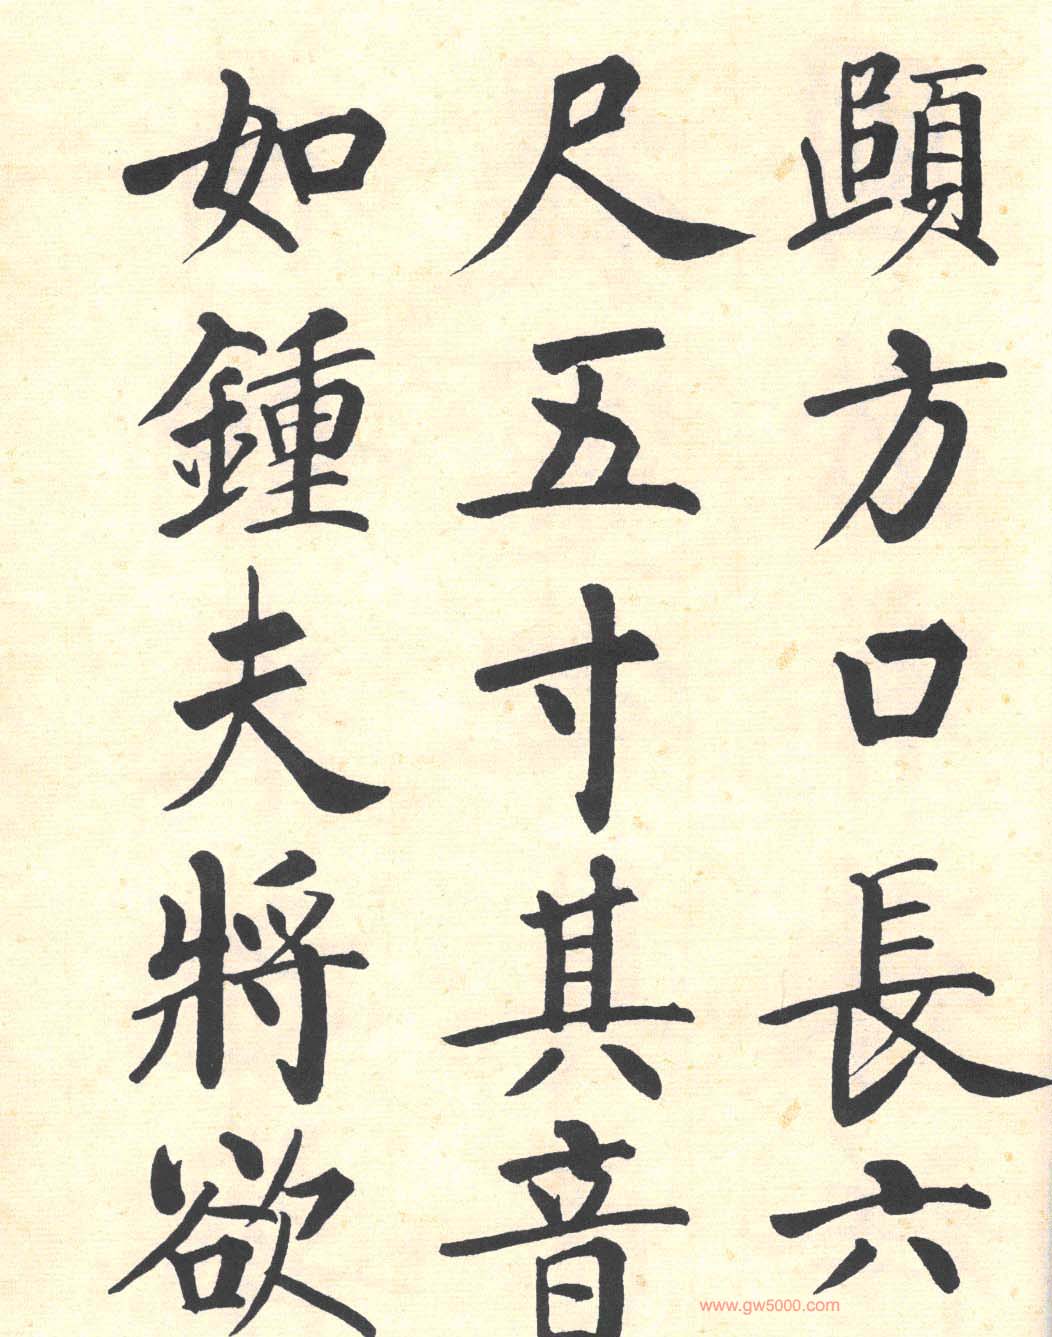 頤方口長六
尺五寸其音
如鍾夫將欲
www.gw5000.com